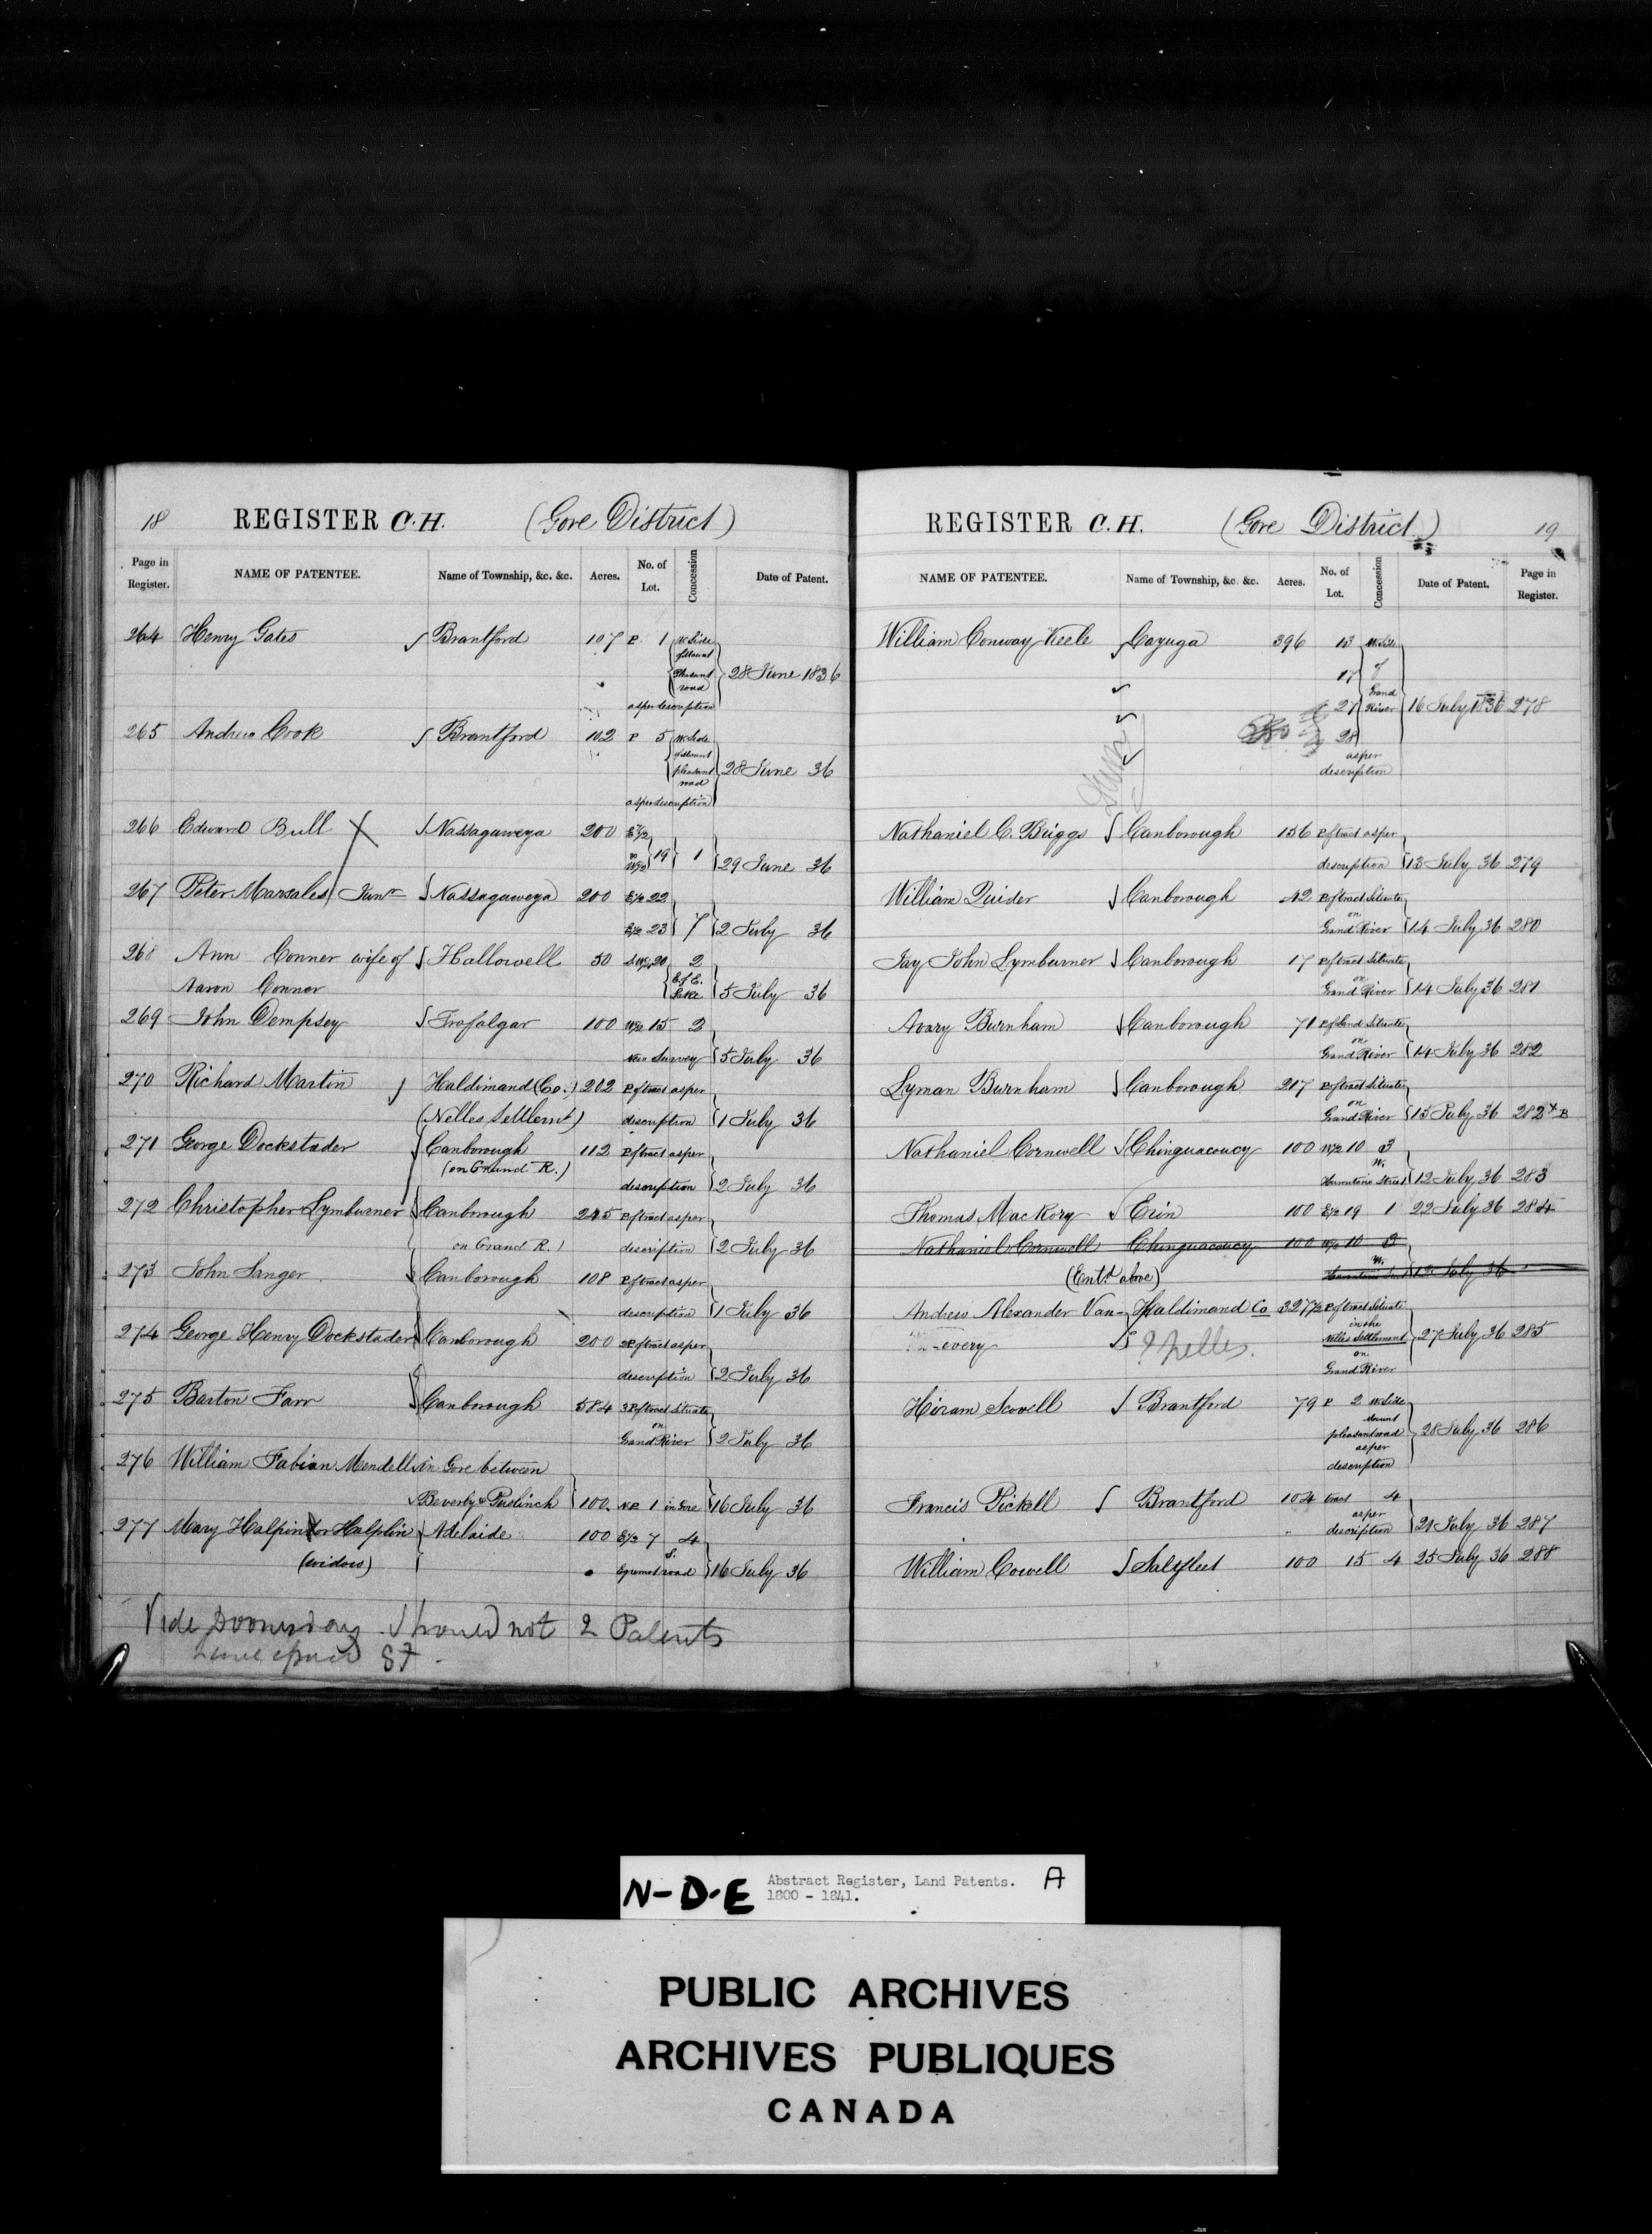 18 REGISTER C.H. (Gore District)
Page in Register. NAME OF PATENTEE. Name of Township, &c. &c. Acres. No. of Lot. Concession Date of Patent.
264 Henry Gates Brantford 107 P 1 W Side
of Mount
Pleasant 28 June 1836
road
as per description
265 Andrew Cook Brantford 102 P 5 W Side
of Mount
pleasant 28 June 36
road
as per description
266 Edward Bull X Nassagaweya 200 E 1/2
& W 1/2 19 1 29 June 36
267 Peter Marsales Junr Nassagaweya 200 E 1/2 22
E 1/2 23 7 2 July 36
268 Ann Conner wife of Hallowell 50 20 2
Aaron Conner E. of E. Lake 5 July 36
269 John Dempsey Trafalgar 100 W 1/2 15 2
New Survey 5 July 36
270 Richard Martin Haldimand (Co.) 202 P of tract as per
(Nelles Settlemt) description 1 July 36
271 George Dockstader Canborough 112 P of tract as per
(on Grand R.)
description 2 July 36
272 Christopher Lymburner Canborough 245 P of tract as per
on Grand R.) description 2 July 36
273 John Sanger Canborough 108 P of tract as per
description 1 July 36
274 George Henry Dockstader Canborough 200 P of tract as per
description 2 July 36
275 Barton Farr Canborough 584 3 P of tract situate
on
Grand River 2 July 36
276 William Fabian Mendell in Gore between
Beverly & Puslinch 100. N P. 1 in Gore 16 July 36
277 Mary Halpin or Halplin Adelaide 100 E 1/2 7 4
(widow) S. Egremont road 16 July 36
Vide Doomsday should not 2 Patents
have issued
REGISTER C.H. (Gore District) 19
NAME OF PATENTEE. Name of Township, &c. &c. Acres. No. of Lot. Concession Date of Patent. Page in Register.
William Conway Keele Cayuga 396 13 W. Side
17 of
27 Grand River 16 July 1836 278
28
as per
description
Nathaniel C. Briggs Canborough 156 P of tract as per
description 13 July 36 279
William Quider Canborough 42 P of tract Situate
on
Grand River 14 July 36 280
Jay John Lymburner Canborough 17 P of tract Situate
on
Grand River 14 July 36 281
Avary Burnham Canborough 71 P of Land Situate
on
Grand River 14 July 36 282
Lyman Burnham Canborough 217 P of tract Situate
on
Grand River 15 July 36 282 x B
Nathaniel Cornwell Chinguacoucy 100 W 1/2 10 3
W.
Hurontario Street 12 July 36 283
Thomas MacKory Erin 100 E 1/2 19 1 22 July 36 284
Nathaniel Cornwell Chinguacoucy 100 W 1/2 10 3
(Entd above) W. 12 July 36
Andrew Alexander Van- Haldimand Co 327 1/2 P of tract Situate
in the
-every ? Nelles. Nelles Settlement 27 July 36 285
on
Grand River
Hiram Scovell Brantford 79 P 2 W Side
Mount
pleasant road 28 July 36 286
as per
description
Francis Pickell Brantford 104 tract 4
as per
description 21 July 36 287
William Cowell Saltfleet 100 15 4 25 July 36 288
N-D-E Abstract Register, Land Patents. A
1800 - 1841.
PUBLIC ARCHIVES
ARCHIVES PUBLIQUES
CANADA